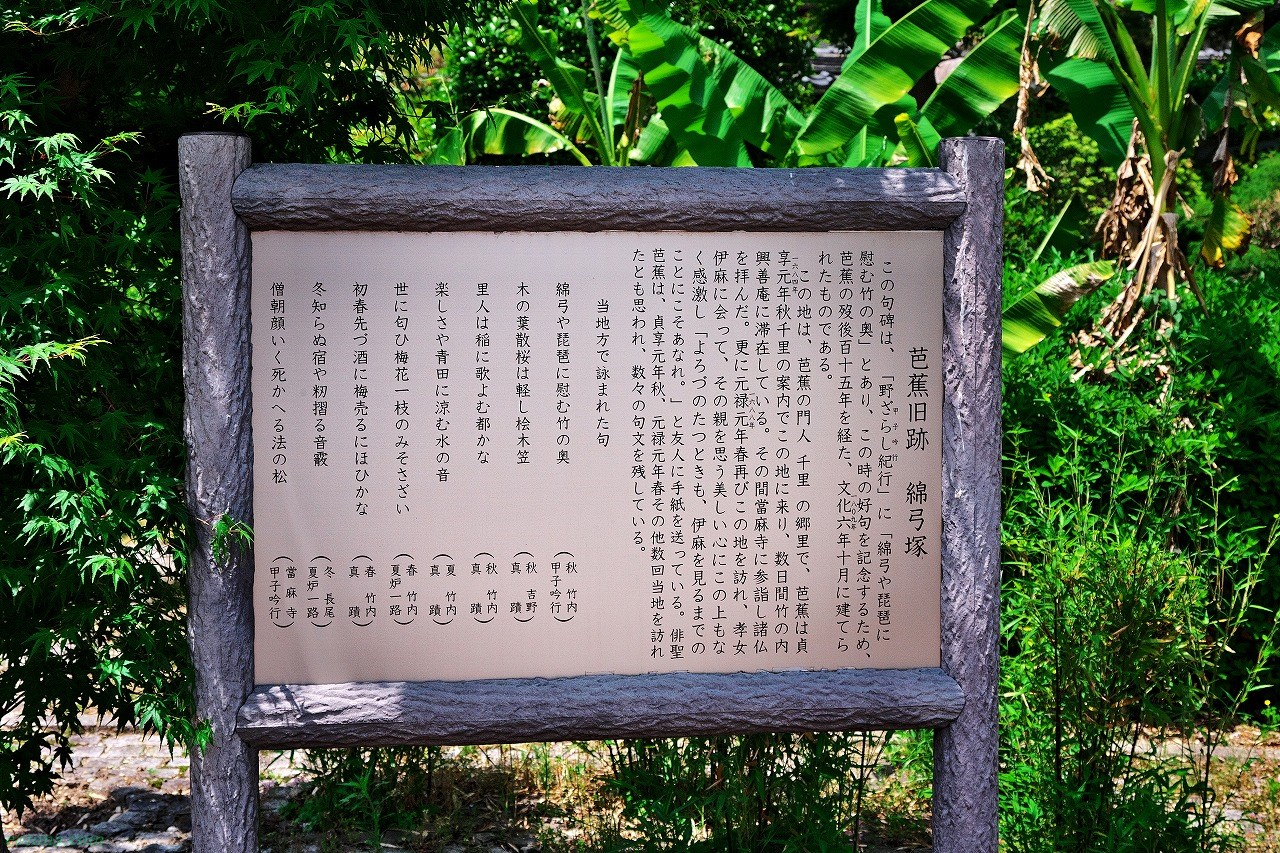 芭蕉旧跡　綿弓塚
この句碑は、「野ざらし紀行」に「綿弓や琵琶に
甲子吟行
慰む竹の奥」とあり、この時の好句を記念するため、
芭蕉の歿後百十五年を経た、文化六年十月に建てら
れたものである。
この地は、芭蕉の門人　千里　の郷里で、芭蕉は貞
享元年秋千里の案内でこの地に来り、数日間竹の内
一六八四年
興善庵に滞在している。その間當麻寺に参詣し諸仏
を拝んだ。更に元禄元年春再びこの地を訪れ、孝女
一六八八年
伊麻に会って、その親を思う美しい心にこの上もな
く感激し「よろづのたつときも、伊麻を見るまでの
ことにこそあなれ。」と友人に手紙を送っている。俳聖
芭蕉は、貞享元年秋、元禄元年春その他数回当地を訪れ
たとも思われ、数々の句文を残している。
当地方で詠まれた句
綿弓や琵琶に慰む竹の奥　（秋　竹内　甲子吟行）
木の葉散桜は軽し桧木笠　（秋　吉野　真　蹟）
里人は稲に歌よむ都かな　（秋　竹内　真　蹟）
楽しさや青田に涼む水の音　（夏　竹内　真　蹟）
世に匂ひ梅花一枝のみそさざい　（春　竹内　夏炉一路）
初春先づ酒に梅売るにほひかな　（春　竹内　真　蹟）
冬知らぬ宿や籾摺る音霰　（冬　長尾　夏炉一路）
僧朝顔いく死かへる法の松　（當麻寺　甲子吟行）